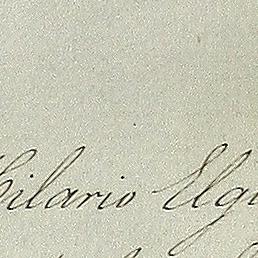 Hilario Elgu